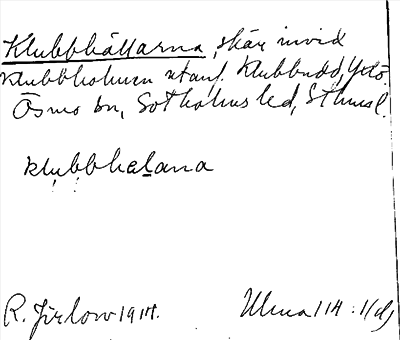 Klubbhällarna, skär invid
Klubbholmen utanf. Klubbudd, Yxlö
Ösmo sn, Sotholms hd, Sthmsl.
klubbhalana
R. Jirlow 1914. Ulma 114:1(d)